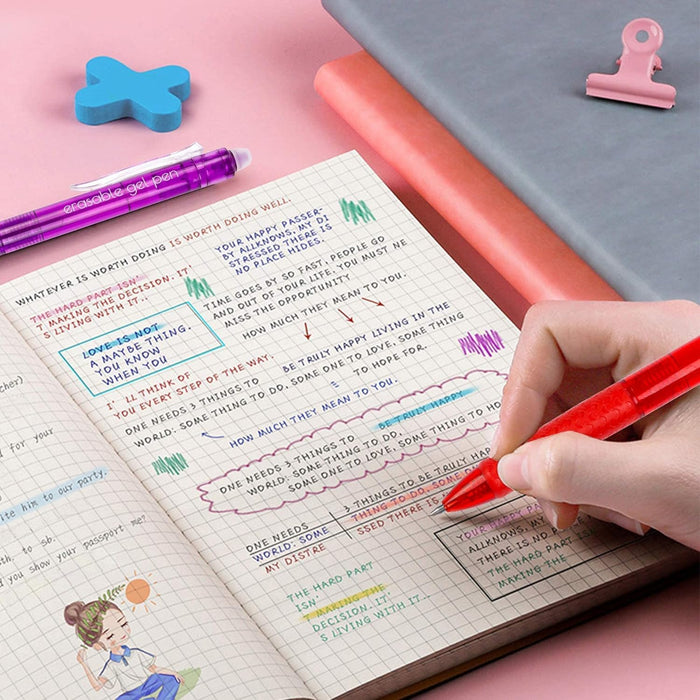 erasable gel pen
WHATEVER IS WORTH DOING IS WORTH DOING WELL.
THE HARD PART ISN'
T MAKING THE DECISION. IT
S LIVING WITH IT..
YOUR HAPPY PASSER-
BY ALLKNOWS, MY DI
STRESSED THERE IS
NO PLACE HIDES.
LOVE IS NOT
A MAYBE THING.
YOU KNOW
WHEN YOU
TIME GOES BY SO FAST, PEOPLE GO
AND OUT OF YOUR LIFE. YOU MUST NE
MISS THE OPPORTUNITY
HOW MUCH THEY MEAN TO YOU.
I' LL THINK OF
YOU EVERY STEP OF THE WAY.
BE TRULY HAPPY LIVING IN THE
ONE NEEDS 3 THINGS TO
WORLD: SOME THING TO DO, SOME ONE TO LOVE, SOME THING
TO HOPE FOR.
HOW MUCH THEY MEAN TO YOU.
BE TRULY HAPPY
ONE NEEDS 3 THINGS TO
WORLD: SOME THING TO DO,
SOME ONE TO LOVE, SOME THING TO HO
3 THINGS TO BE TRULY HAPP
THING TO DO, SOME ON
SSED THERE IS
ONE NEEDS
WORLD: SOME
MY DISTRE
YOUR HAPPY PASSE
ALLKNOWS, MY D
THERE IS NO PLA
THE HARD PART IS
MAKING THE
THE HARD PART
ISN'
T MAKING THE
DECISION. IT'
S LIVING WITH IT..
cher)
d for your
ite him to our party.
oth. to sb.
d you show your passport me?